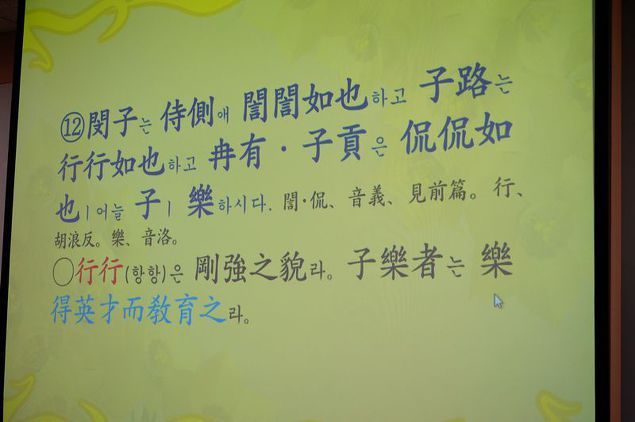 ⑫閔子는 侍側애 誾誾如也하고 子路는
行行如也하고 冉有·子貢은 侃侃如
也ㅣ어늘 子ㅣ 樂하시다. 誾·侃、音義、見前篇。行、
胡浪反。樂、音洛。
○行行(항항)은 剛強之貌라。子樂者는 樂
得英才而教育之라。